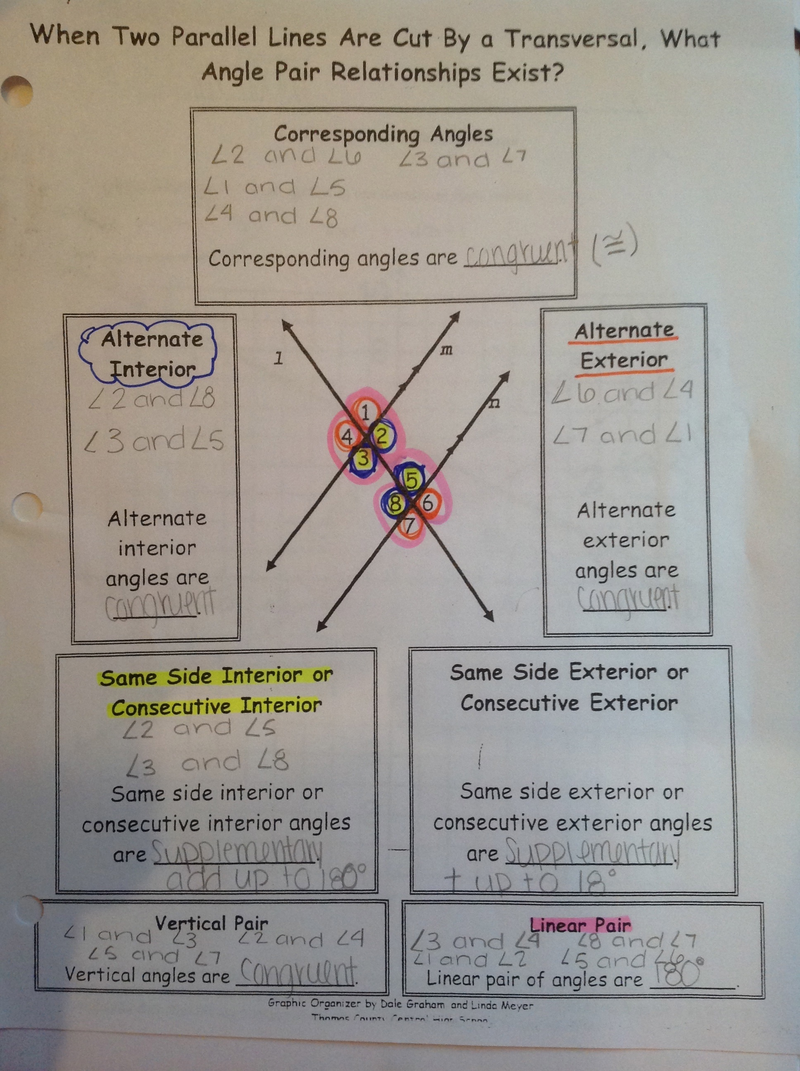 When Two Parallel Lines Are Cut By a Transversal, What
Angle Pair Relationships Exist?
Corresponding Angles
∠2 and ∠6 ∠3 and ∠7
∠1 and ∠5
∠4 and ∠8
Corresponding angles are congruent (≅)
Alternate
Interior
∠2 and ∠8
∠3 and ∠5
Alternate
interior
angles are
congruent
l
m
n
1
4 2
3
5
8 6
7
Alternate
Exterior
∠6 and ∠4
∠7 and ∠1
Alternate
exterior
angles are
congruent
Same Side Interior or
Consecutive Interior
∠2 and ∠5
∠3 and ∠8
Same side interior or
consecutive interior angles
are supplementary.
add up to 180°
Same Side Exterior or
Consecutive Exterior
Same side exterior or
consecutive exterior angles
are supplementary.
+ up to 18°
Vertical Pair
∠1 and ∠3 ∠2 and ∠4
∠5 and ∠7
Vertical angles are congruent.
Linear Pair
∠3 and ∠4 ∠8 and ∠7
∠1 and ∠2 ∠5 and ∠6
Linear pair of angles are 180°.
Graphic Organizer by Dale Graham and Linda Meyer
Thomas County Central High School